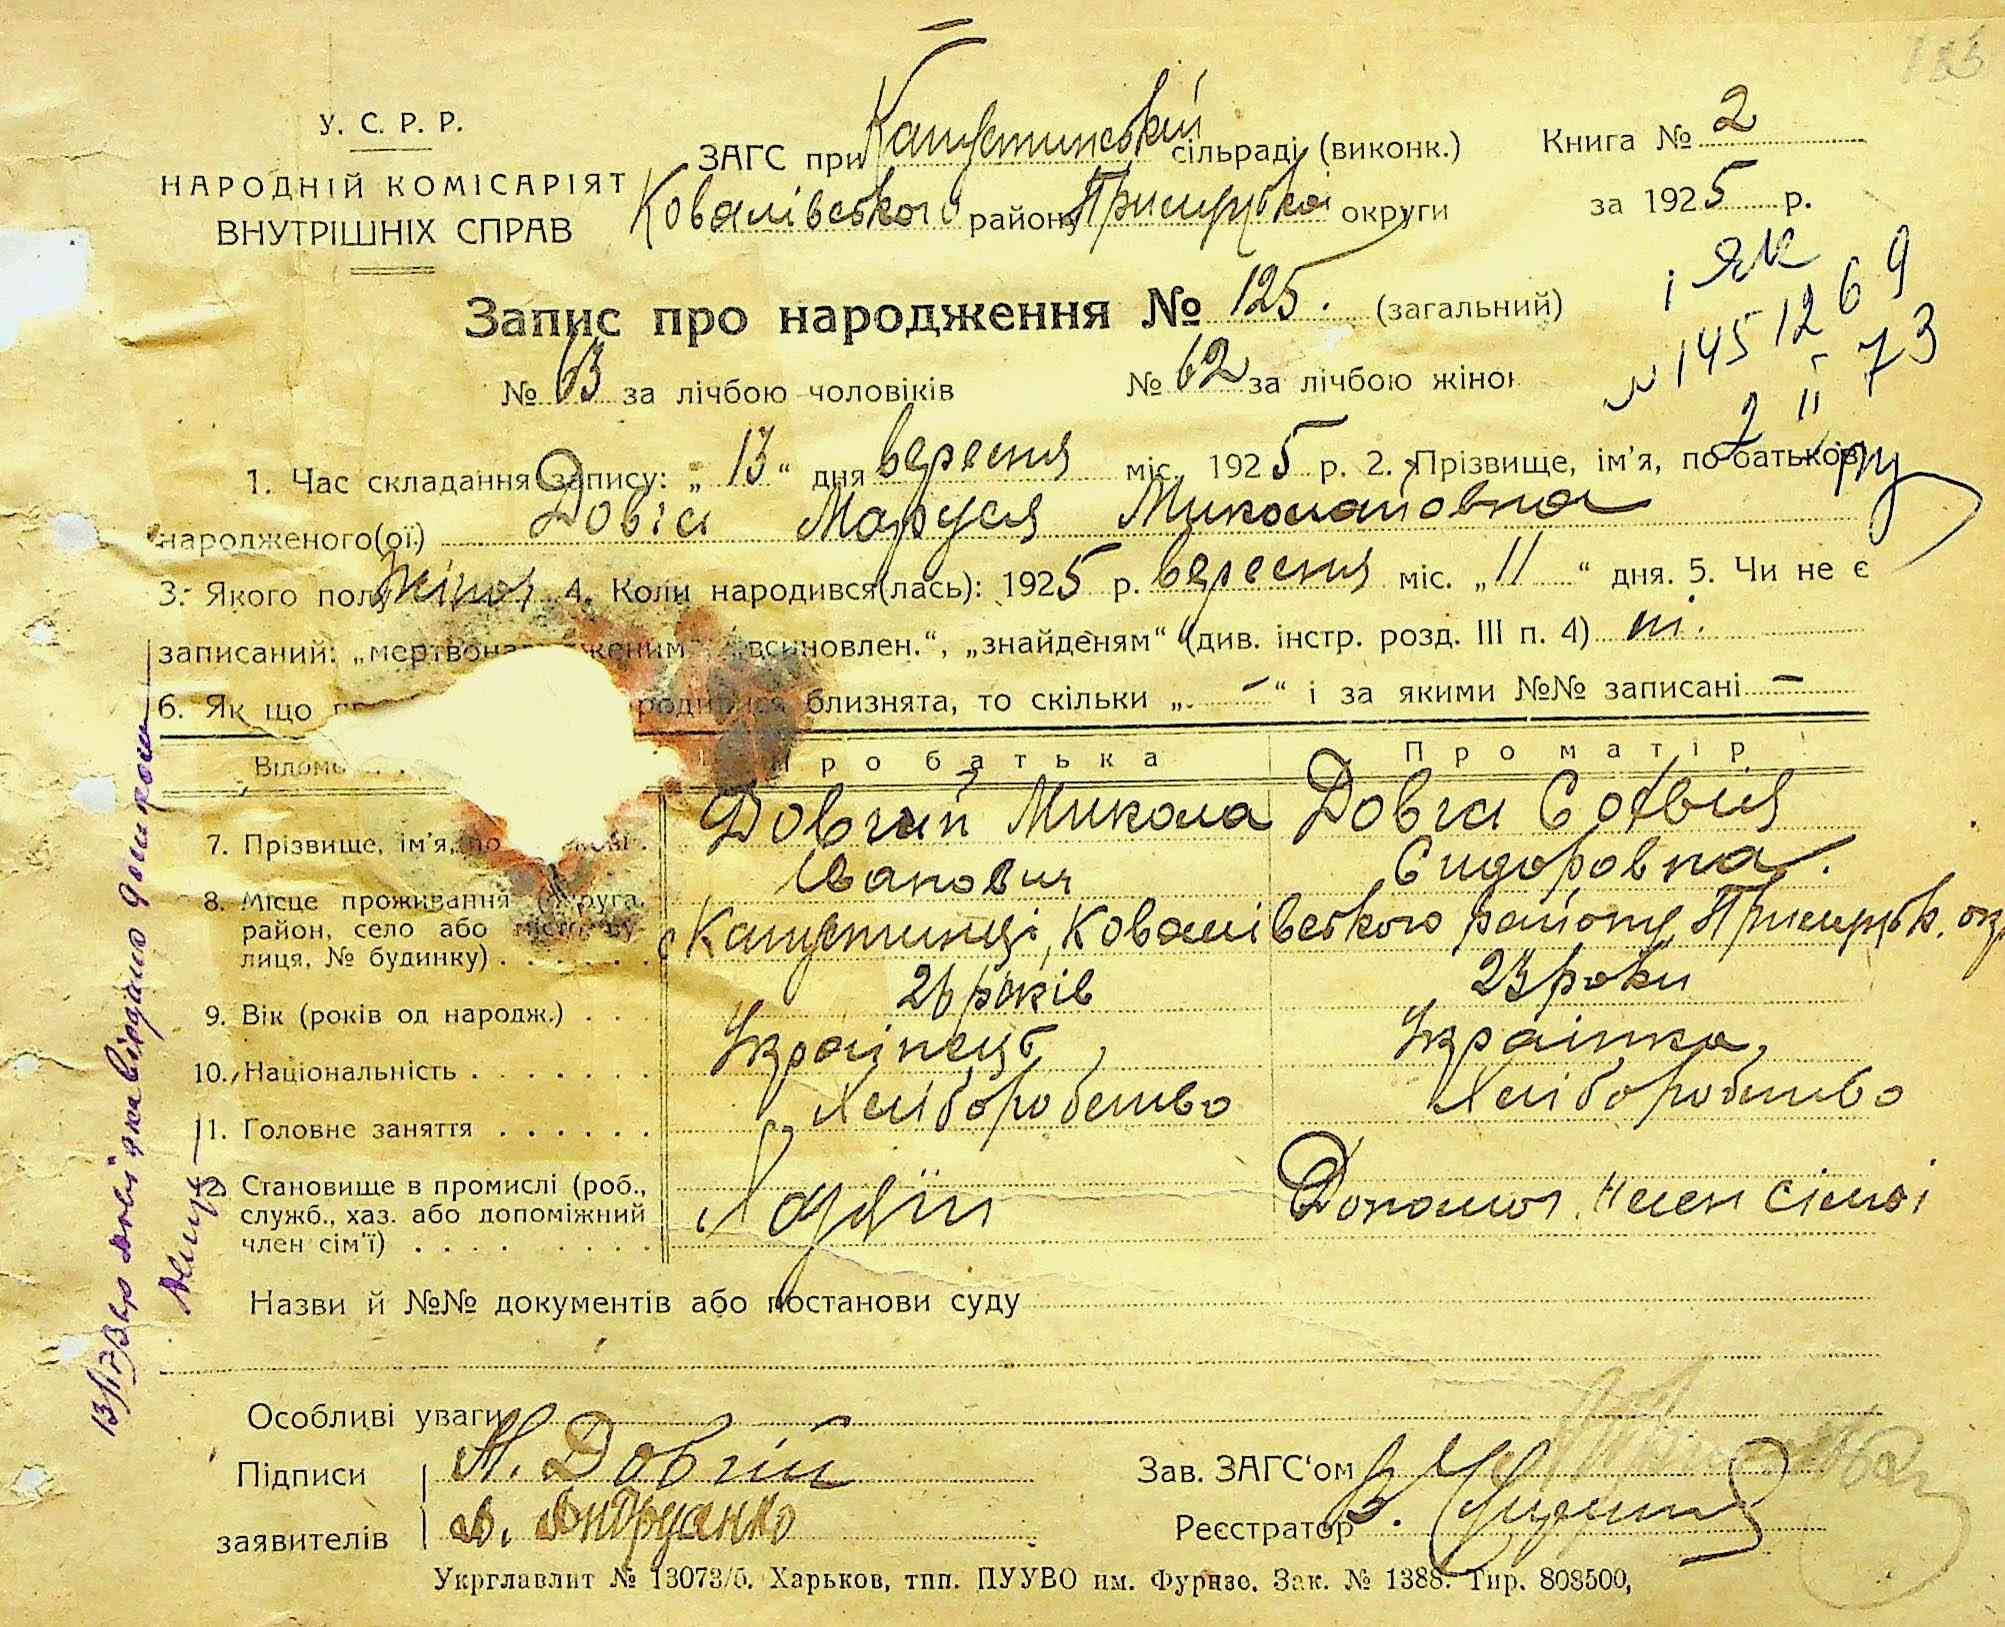 У. С. Р. Р.
НАРОДНІЙ КОМІСАРІЯТ
ВНУТРІШНІХ СПРАВ
ЗАГС при Капустинській сільраді (виконк.)
Ковалівського району Прилуцької округи
Книга № 2
за 1925 р.
Запис про народження № 125. (загальний)
№ 63 за лічбою чоловіків № 62 за лічбою жінок
і ЯК
№ 145126
1. Час складання запису: „ 13 “ дня вересня міс. 1925 р. 2. Прізвище, ім'я, по батькові
народженого(ої) Довга Маруся Миколаївна
3. Якого полу жіноч 4. Коли народився(лась): 1925 р. вересня міс. „ 11 “ дня. 5. Чи не є
записаний: „мертвонародженим“ „всиновлен.“, „знайденям“ (див. інстр. розд. III п. 4) ні.
6. Як що родилися близнята, то скільки „ – “ і за якими №№ записані –
Відомо Про батька Про матір
7. Прізвище, ім'я, по Довгий Микола Довга Софія
Іванович Сидоровна.
8. Місце проживання (округа,
район, село або місто, ву-
лиця, № будинку) с Капустинці, Ковалівського району Прилуцьк. окр
9. Вік (років од народж.) 26 років 23 роки
10. Національність Українець, Українка,
11. Головне заняття Хліборобство Хліборобство
12. Становище в промислі (роб.,
служб., хаз. або допоміжний
член сім'ї) Хазяїн Допомог. член сімьі
Назви й №№ документів або постанови суду
Особливі уваги
Підписи М. Довгий Зав. ЗАГС'ом
заявителів Реєстратор
Укрглавлит № 13073/б. Харьков, тип. ПУУВО им. Фрунзе. Зак. № 1388. Тир. 808500,